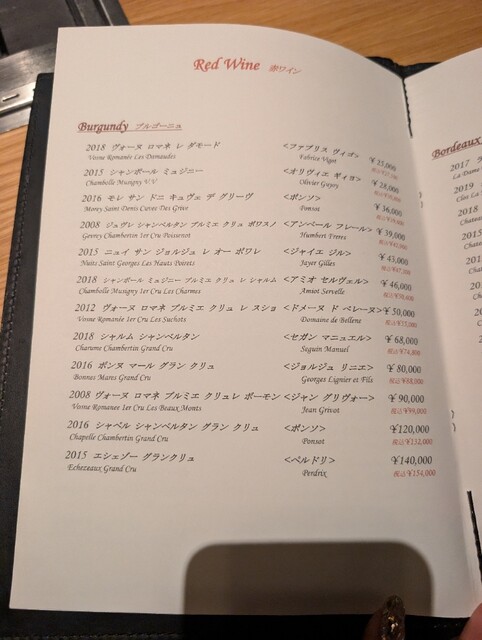 Red Wine 赤ワイン
Burgundy ブルゴーニュ
2018 ヴォーヌ ロマネ レ ダモード <ファブリス ヴィゴ> ¥25,000
Vosne Romanée Les Damaudes Fabrice Vigot 税込¥27,500
2015 シャンボール ミュジニー <オリヴィエ ギィヨ> ¥28,000
Chambolle Musigny V.V Olivier Guyot
2016 モレ サン ドニ キュヴェ デ グリーヴ <ポンソ> ¥36,000
Morey Saint Denis Cuvee Des Grive Ponsot
2008 ジュヴレ シャンベルタン プルミエ クリュ ポワスノ <アンベール フレール> ¥39,000
Gevrey Chambertin 1er Cru Poissenot Humbert Freres
2015 ニュイ サン ジョルジュ レ オー ポワレ <ジャイエ ジル> ¥43,000
Nuits Saint Georges Les Hauts Poirets Jayer Gilles 税込¥47,300
2018 シャンボール ミュジニー プルミエ クリュ レ シャルム <アミオ セルヴェル> ¥46,000
Chambolle Musigny 1er Cru Les Charmes Amiot Servelle 税込¥50,600
2012 ヴォーヌ ロマネ プルミエ クリュ レ スショ <ドメーヌ ド ベレーヌ> ¥50,000
Vosne Romanée 1er Cru Les Suchots Domaine de Bellene 税込¥55,000
2018 シャルム シャンベルタン <セガン マニュエル> ¥68,000
Charone Chambertin Grand Cru Seguin Manuel 税込¥74,800
2016 ボンヌ マール グラン クリュ <ジョルジュ リニエ> ¥80,000
Bonnes Mares Grand Cru Georges Lignier et Fils 税込¥88,000
2008 ヴォーヌ ロマネ プルミエ クリュレ ボーモン <ジャン グリヴォー> ¥90,000
Vosne Romanee 1er Cru Les Beaux Monts Jean Grivot 税込¥99,000
2016 シャペル シャンベルタン グラン クリュ <ポンソ> ¥120,000
Chapelle Chambertin Grand Cru Ponsot 税込¥132,000
2015 エシェゾー グランクリュ <ペルドリ> ¥140,000
Echezeaux Grand Cru Perdrix 税込¥154,000
Bordeaux
2017
La Dame
2019
Clos La
2018
Chatea
201
Chate
201
Chat
20